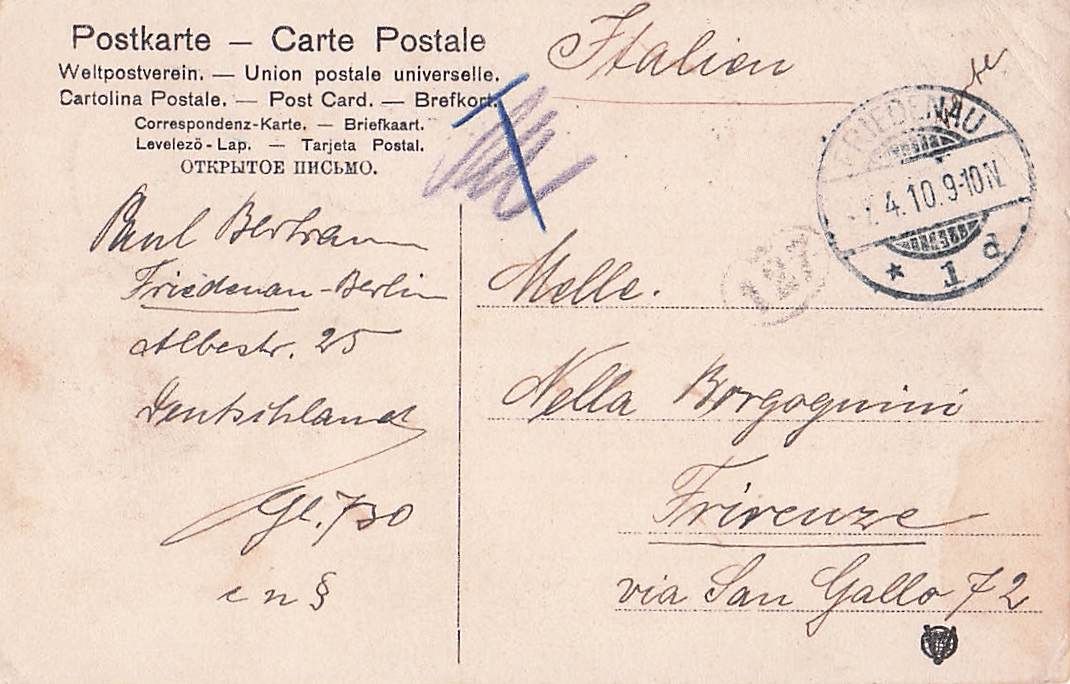 Postkarte — Carte Postale
Weltpostverein. — Union postale universelle.
Cartolina Postale. — Post Card. — Brefkort.
Correspondenz-Karte. — Briefkaart.
Levelezö-Lap. — Tarjeta Postal.
ОТКРЫТОЕ ПИСЬМО.
Italien
T
FRIEDENAU
4.10.9-10N.
* 1 d
127
Paul Bertram
Friedenau-Berlin
Albestr. 25
Deutschland
Gl. 730
e n §
Melle.
Nella Borgognini
Frirenze
via San Gallo 72